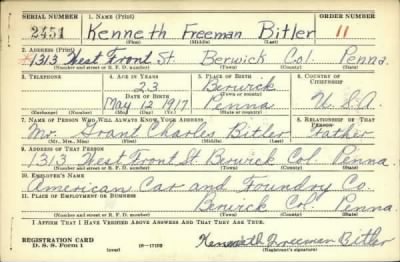 SERIAL NUMBER 1. NAME (Print) ORDER NUMBER
2451 Kenneth Freeman Bitler 11
(First) (Middle) (Last)
2. ADDRESS (Print)
1313 West Front St. Berwick Col. Penna.
(Number and street or R. F. D. number) (Town) (County) (State)
3. TELEPHONE 4. AGE IN YEARS 5. PLACE OF BIRTH 6. COUNTRY OF CITIZENSHIP
23 Berwick
DATE OF BIRTH (Town or county)
May 12, 1917 Penna U.S.A.
(Exchange) (Number) (Mo.) (Day) (Yr.) (State or country)
7. NAME OF PERSON WHO WILL ALWAYS KNOW YOUR ADDRESS 8. RELATIONSHIP OF THAT PERSON
Mr. Grant Charles Bitler Father
(Mr., Mrs., Miss) (First) (Middle) (Last)
9. ADDRESS OF THAT PERSON
1313 West Front St. Berwick Col. Penna.
(Number and street or R. F. D. number) (Town) (County) (State)
10. EMPLOYER'S NAME
American Car and Foundry Co.
11. PLACE OF EMPLOYMENT OR BUSINESS
Berwick Col. Penna.
(Number and street or R. F. D. number) (Town) (County) (State)
I AFFIRM THAT I HAVE VERIFIED ABOVE ANSWERS AND THAT THEY ARE TRUE.
REGISTRATION CARD
D. S. S. FORM 1 (over) 16—17105 Kenneth Freeman Bitler
(Registrant's signature)